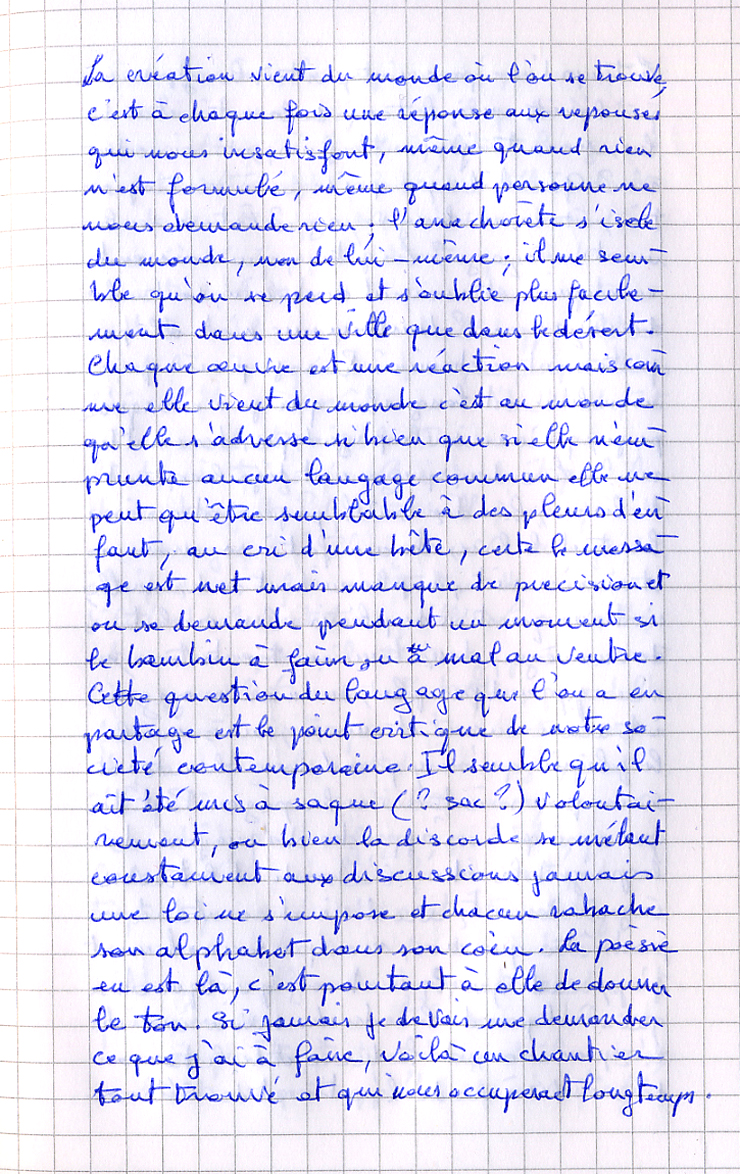 La création vient du monde où l'on se trouve,
c'est à chaque fois une réponse aux reponses
qui nous insatisfont, même quand rien
n'est formulé, même quand personne ne
nous demande rien ; l'anachorète s'isole
du monde, non de lui-même ; il me sem-
ble qu'on se perd et s'oublie plus facile-
ment dans une ville que dans le désert.
Chaque œuvre est une réaction mais com-
me elle vient du monde c'est au monde
qu'elle s'adresse si bien que si elle n'em-
prunte aucun langage commun elle ne
peut qu'être semblable à des pleurs d'en-
fant, au cri d'une bête, certe le messa-
ge est net mais manque de precision et
on se demande pendant un moment si
le bambin à faim, ou à mal au ventre.
Cette question du langage que l'on a en
partage est le point critique de notre so-
cieté contemporaine. Il semble qu'il
ait été mis à saque (? sac ?) volontai-
rement, ou bien la discorde se mêlant
constament aux discussions jamais
une loi ne s'impose et chacun rabache
son alphabet dans son coin. La poèsie
en est là, c'est pourtant à elle de donner
le ton. Si jamais je devais me demander
ce que j'ai à faire, voilà un chantier
tout trouvé et qui nous occuperait longtemps.